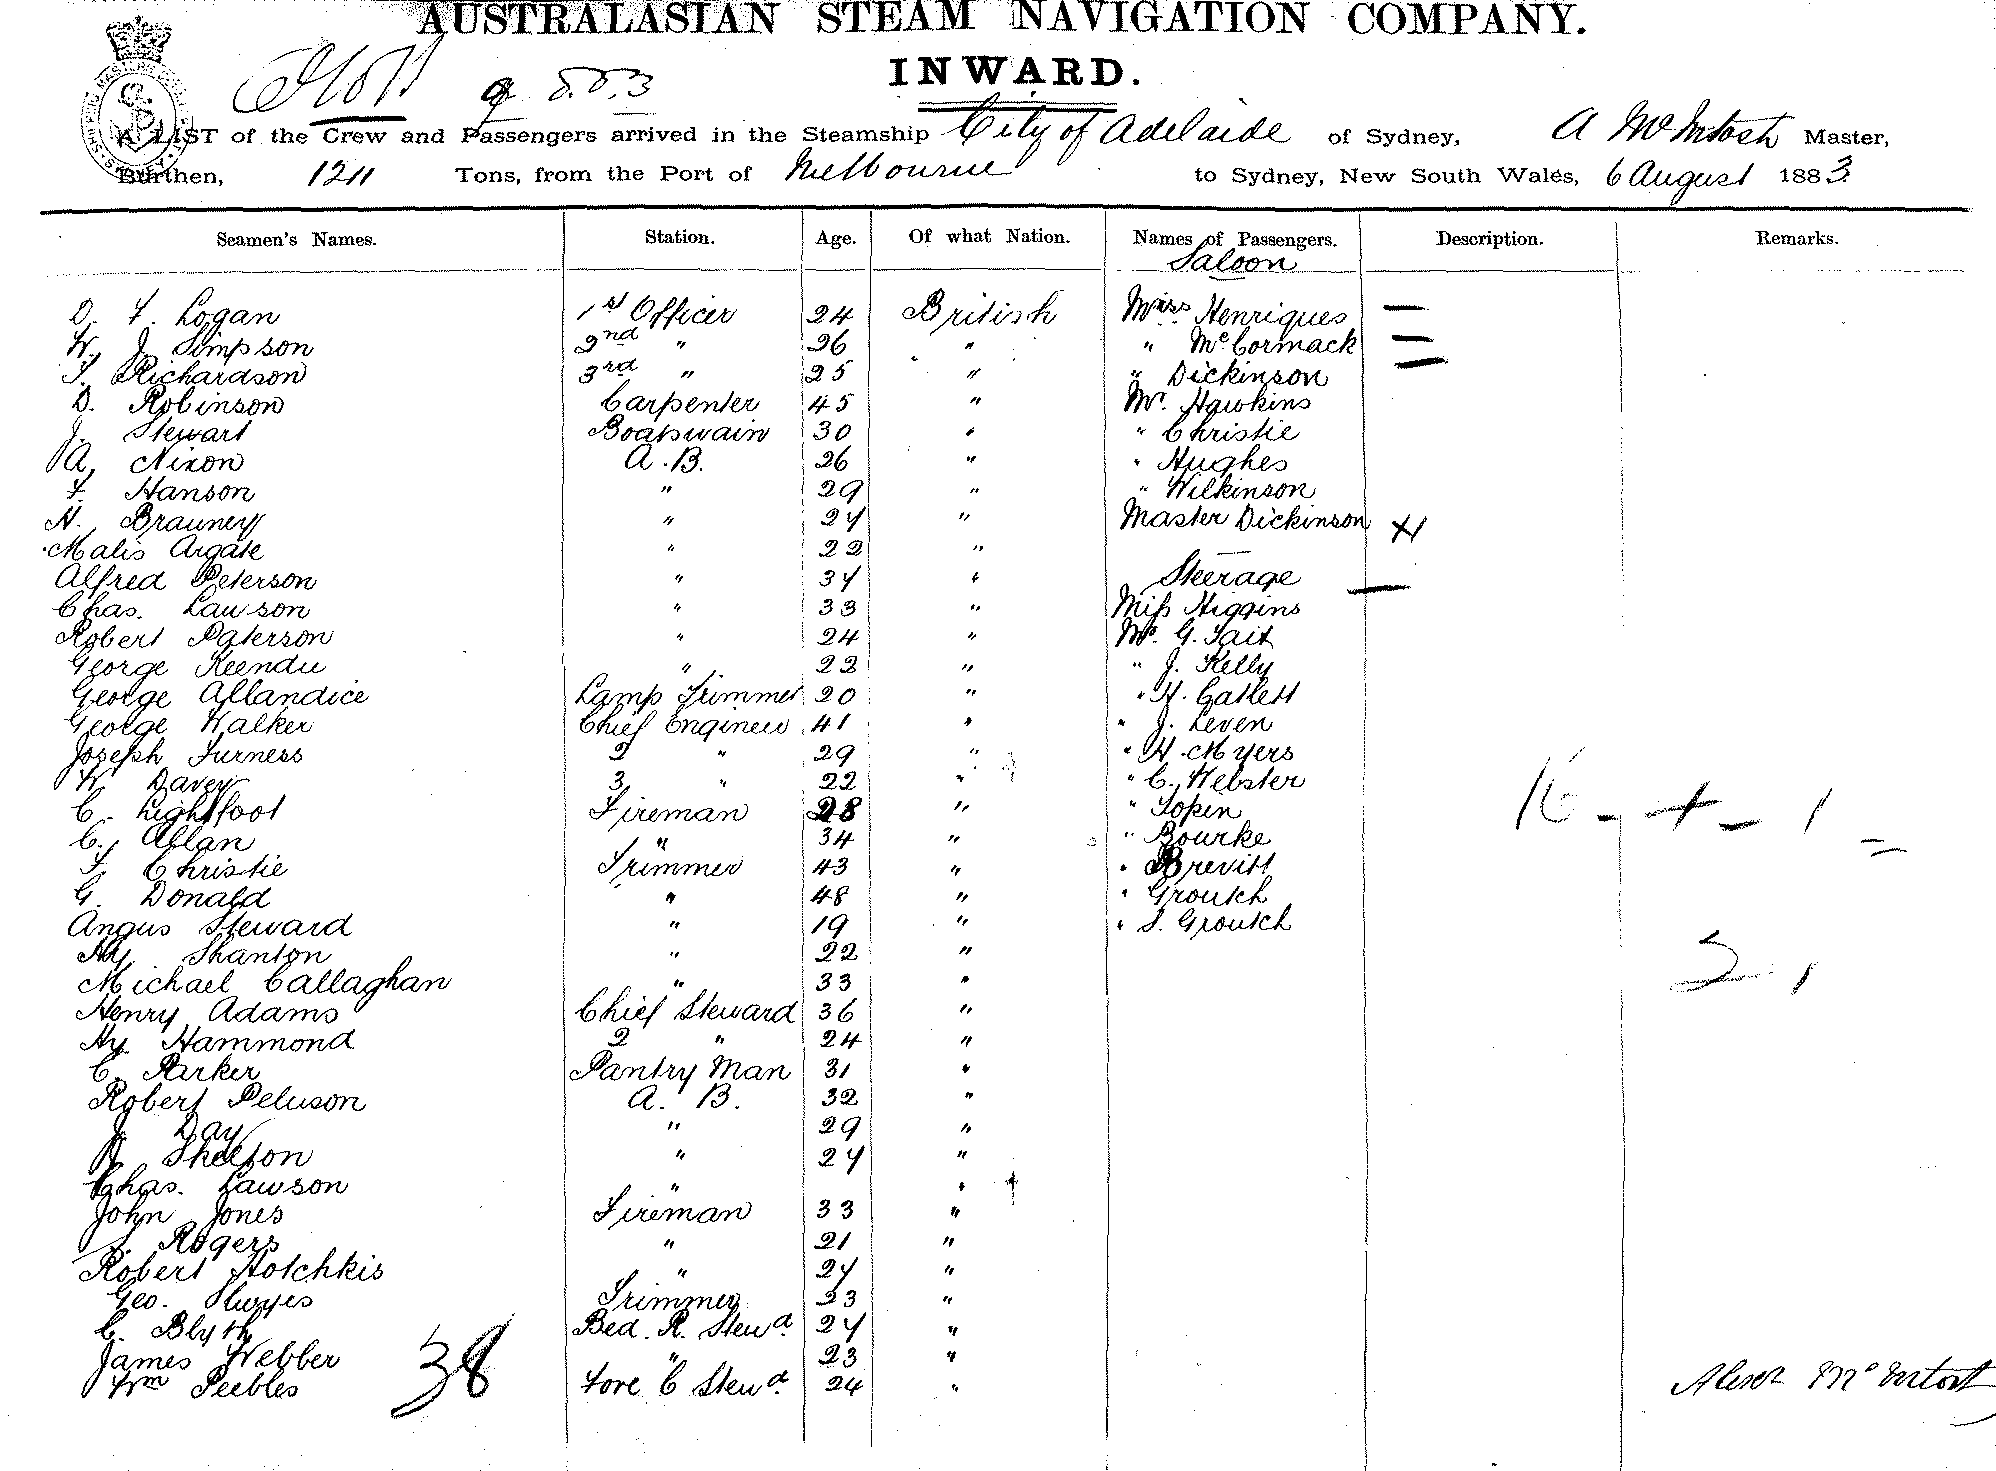 AUSTRALASIAN STEAM NAVIGATION COMPANY.
INWARD.
A LIST of the Crew and Passengers arrived in the Steamship City of Adelaide of Sydney, A McIntosh Master,
Burthen, 1211 Tons, from the Port of Melbourne to Sydney, New South Wales, 6 August 1883
Seamen's Names. Station. Age. Of what Nation. Names of Passengers. Description. Remarks.
Saloon
D. F. Logan 1st Officer 24 British Miss Henriques —
W. J. Simpson 2nd " 26 " " McCormack —
T. Richardson 3rd " 25 " " Dickinson —
D. Robinson Carpenter 45 " Mr. Hawkins
J. Stewart Boatswain 30 " " Christie
A. Nixon A.B. 26 " " Hughes
F. Hanson " 29 " " Wilkinson
N. Brauney " 24 " Master Dickinson
Malis Argate " 22 "
Alfred Peterson " 34 " Steerage —
Chas. Lawson " 33 " Miss Higgins
Robert Paterson " 24 " Mr. G. Tait
George Keendu " 22 " " J. Kelly
George Allandice Lamp Trimmer 20 " " H. Catlett
George Walker Chief Engineer 41 " " J. Leven
Joseph Furness 2 " 29 " " H. Myers
W Davey 3 " 22 " " C. Webster
C. Lightfoot Fireman 28 " " Topin
C. Allan " 34 " " Bourke
F. Christie Trimmer 43 " " Brevitt
G. Donald " 48 " " Groutch
Angus Steward " 19 " " S. Groutch
Hy. Shanton " 22 "
Michael Callaghan " 33 "
Henry Adams Chief Steward 36 "
Hy. Hammond 2 " 24 "
C. Parker Pantry Man 31 "
Robert Peluson A. B. 32 "
J Day " 29 "
Shelton " 24 "
Chas. Lawson " "
John Jones Fireman 33 "
Rogers " 21 "
Robert Hotchkis " 24 "
Geo. Trimmer 23 "
C. Blyth Bed. R. Stewd. 24 "
James Webber " 23 "
Wm Peebles Fore C Stewd. 24 "
38
Alexr McIntosh